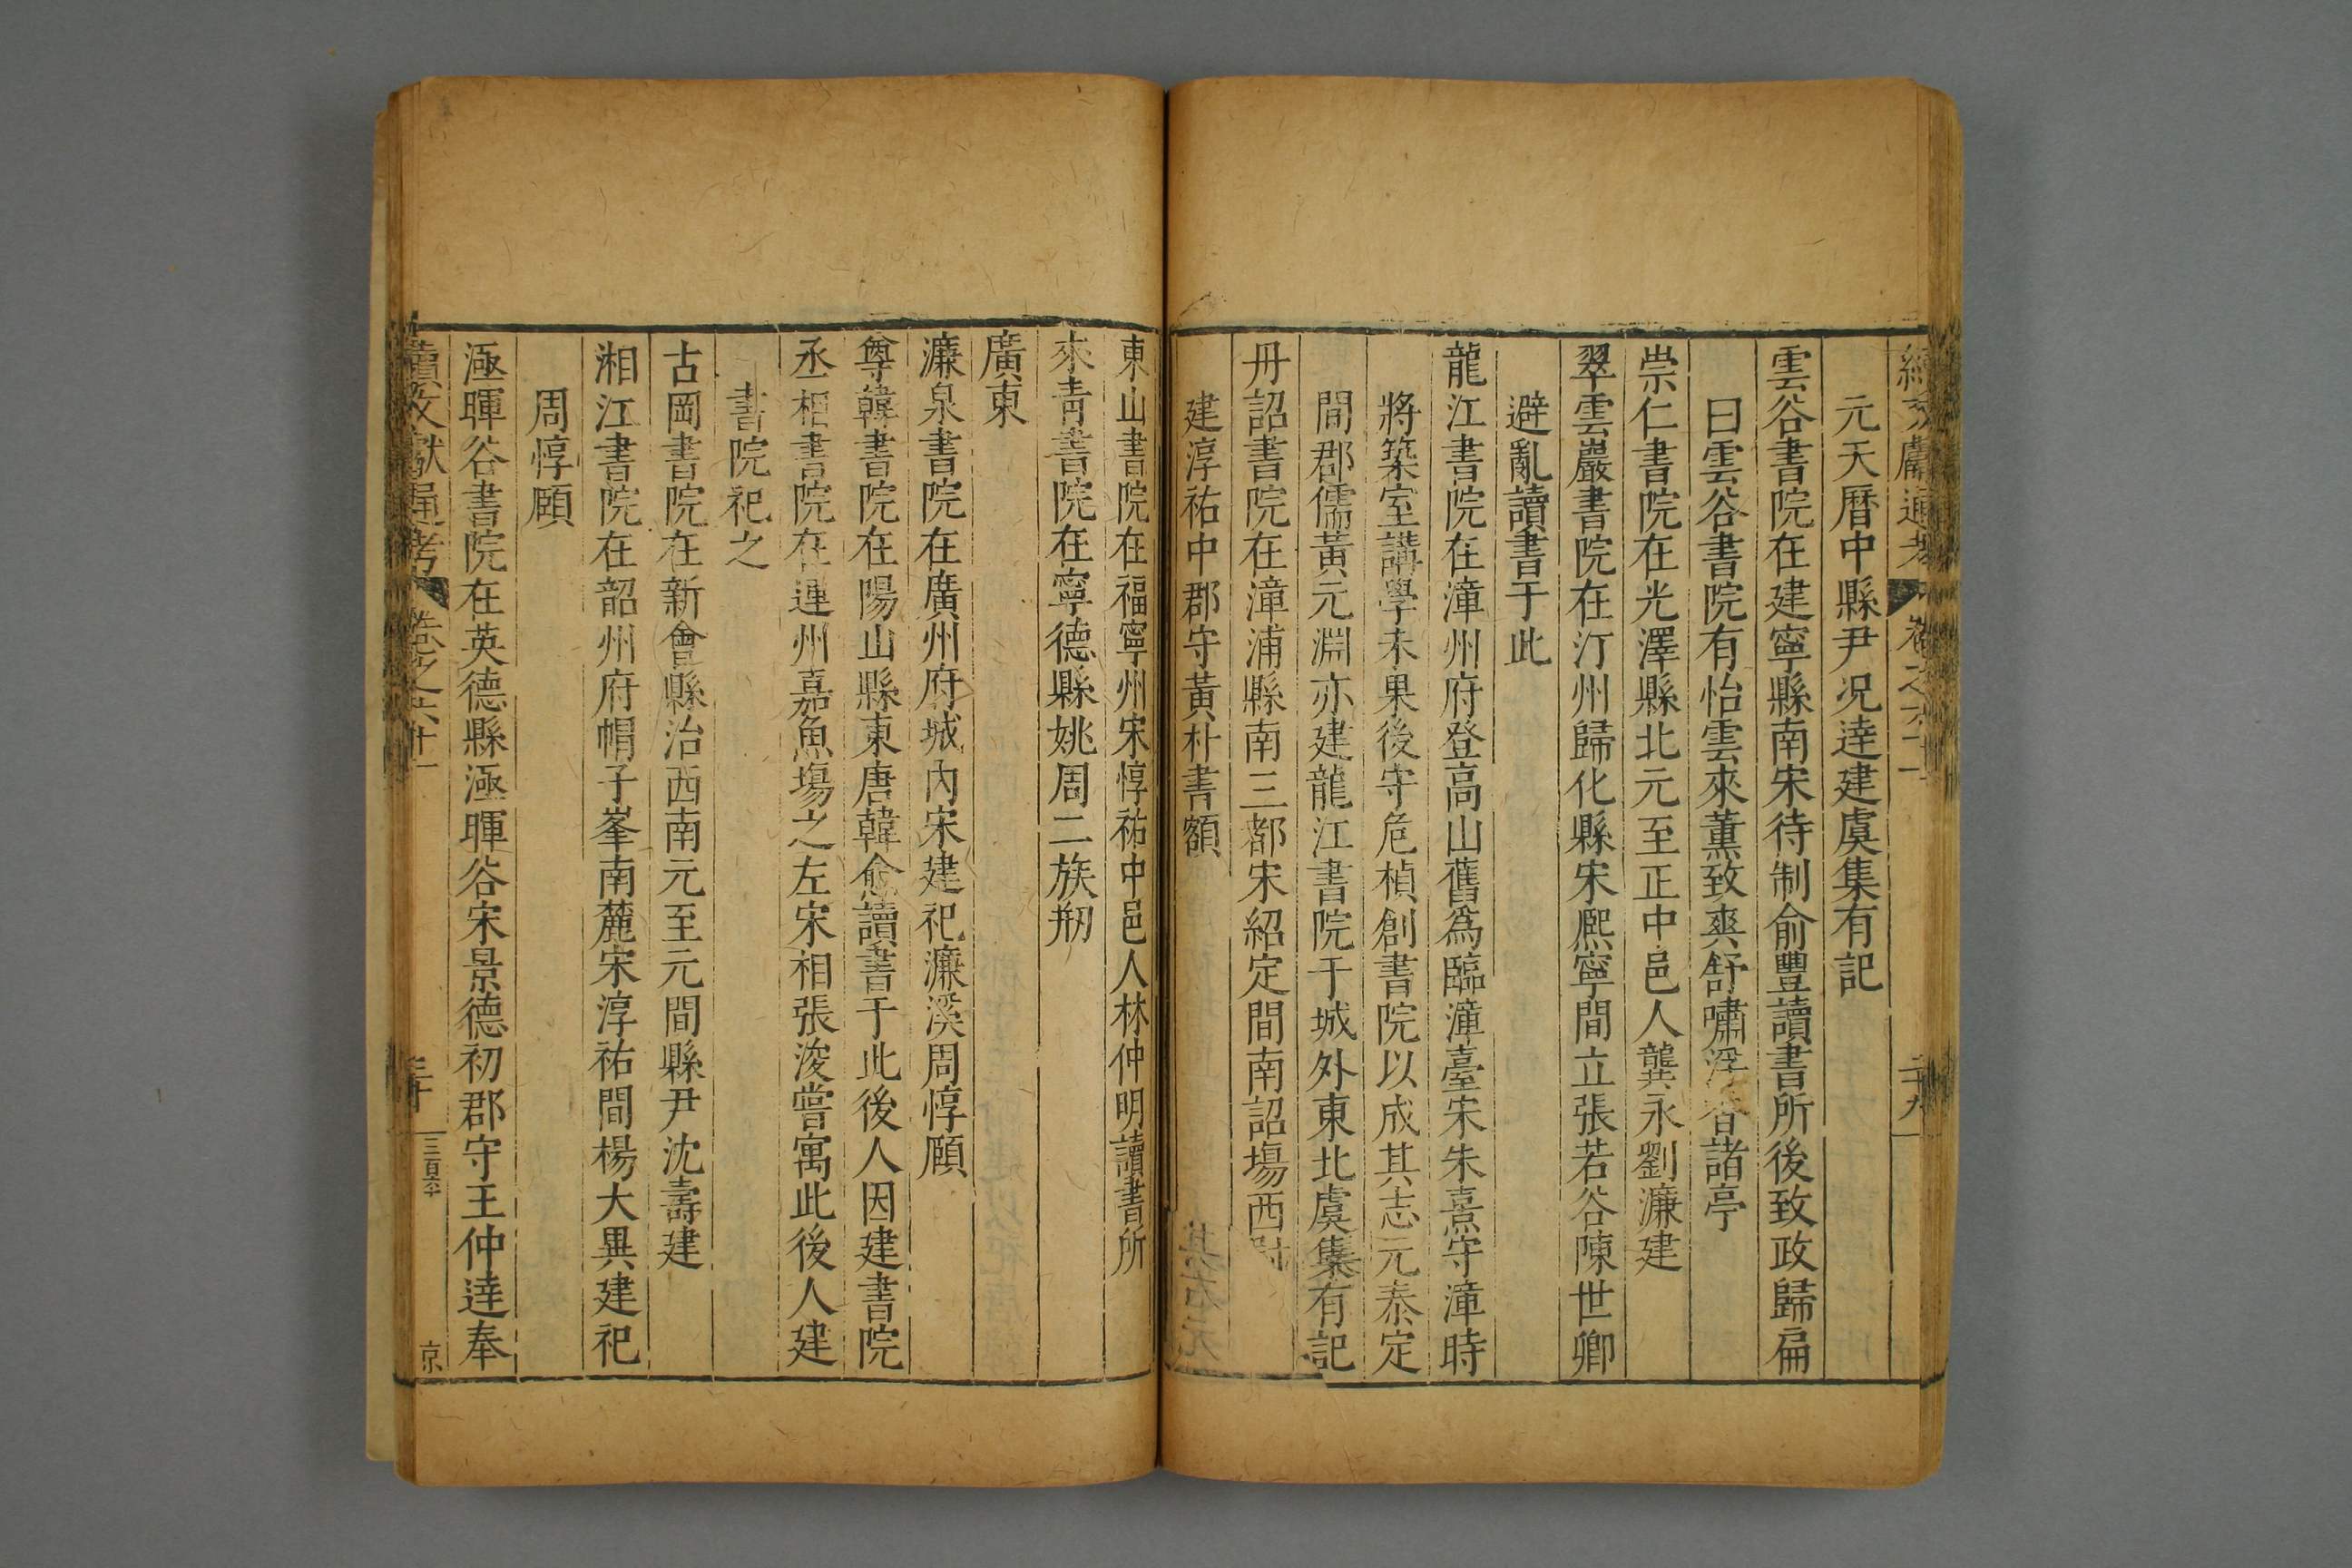 續文獻通考 卷之六十一 二十九
元天曆中縣尹况逹建虞集有記
雲谷書院在建寧縣南宋待制俞豐讀書所後致政歸扁
曰雲谷書院有怡雲來薰致爽舒嘯浮香諸亭
崇仁書院在光澤縣北元至正中邑人龔永劉濂建
翠雲巖書院在汀州歸化縣宋熈寧間立張若谷陳世卿
避亂讀書于此
龍江書院在漳州府登高山舊爲臨漳臺宋朱熹守漳時
將築室講學未果後守危楨創書院以成其志元泰定
間郡儒黃元淵亦建龍江書院于城外東北虞集有記
丹詔書院在漳浦縣南三都宋紹定間南詔場西尉
建淳祐中郡守黃朴書額
東山書院在福寧州宋惇祐中邑人林仲明讀書所
來青書院在寧德縣姚周二族剏
廣東
濂泉書院在廣州府城內宋建祀濂溪周惇頤
尊韓書院在陽山縣東唐韓愈讀書于此後人因建書院
丞相書院在連州嘉魚塲之左宋相張浚嘗寓此後人建
書院祀之
古岡書院在新會縣治西南元至元間縣尹沈壽建
湘江書院在韶州府帽子峯南麓宋淳祐間楊大異建祀
周惇頤
涵暉谷書院在英德縣涵暉谷宋景德初郡守王仲逹奉
續文獻通考 卷之六十一 三十 三百六十 京